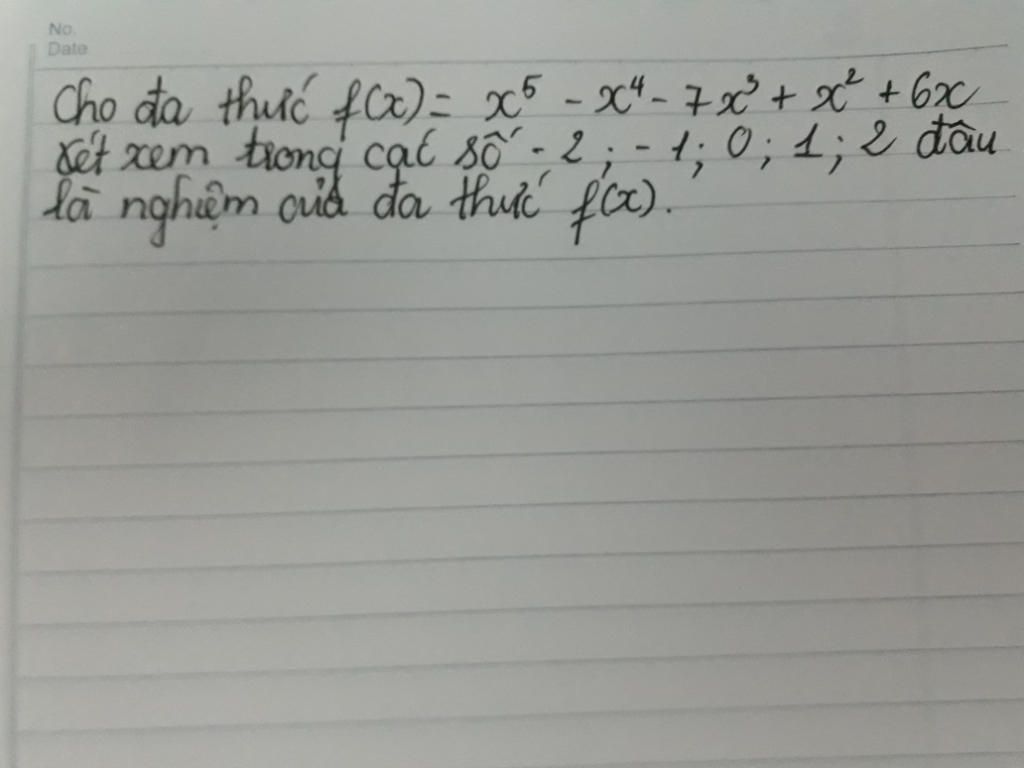 No.
Date
Cho đa thức f(x) = x⁵ - x⁴ - 7x³ + x² + 6x
xét xem trong các số - 2 ; - 1 ; 0 ; 1 ; 2 đâu
là nghiệm của đa thức f(x).